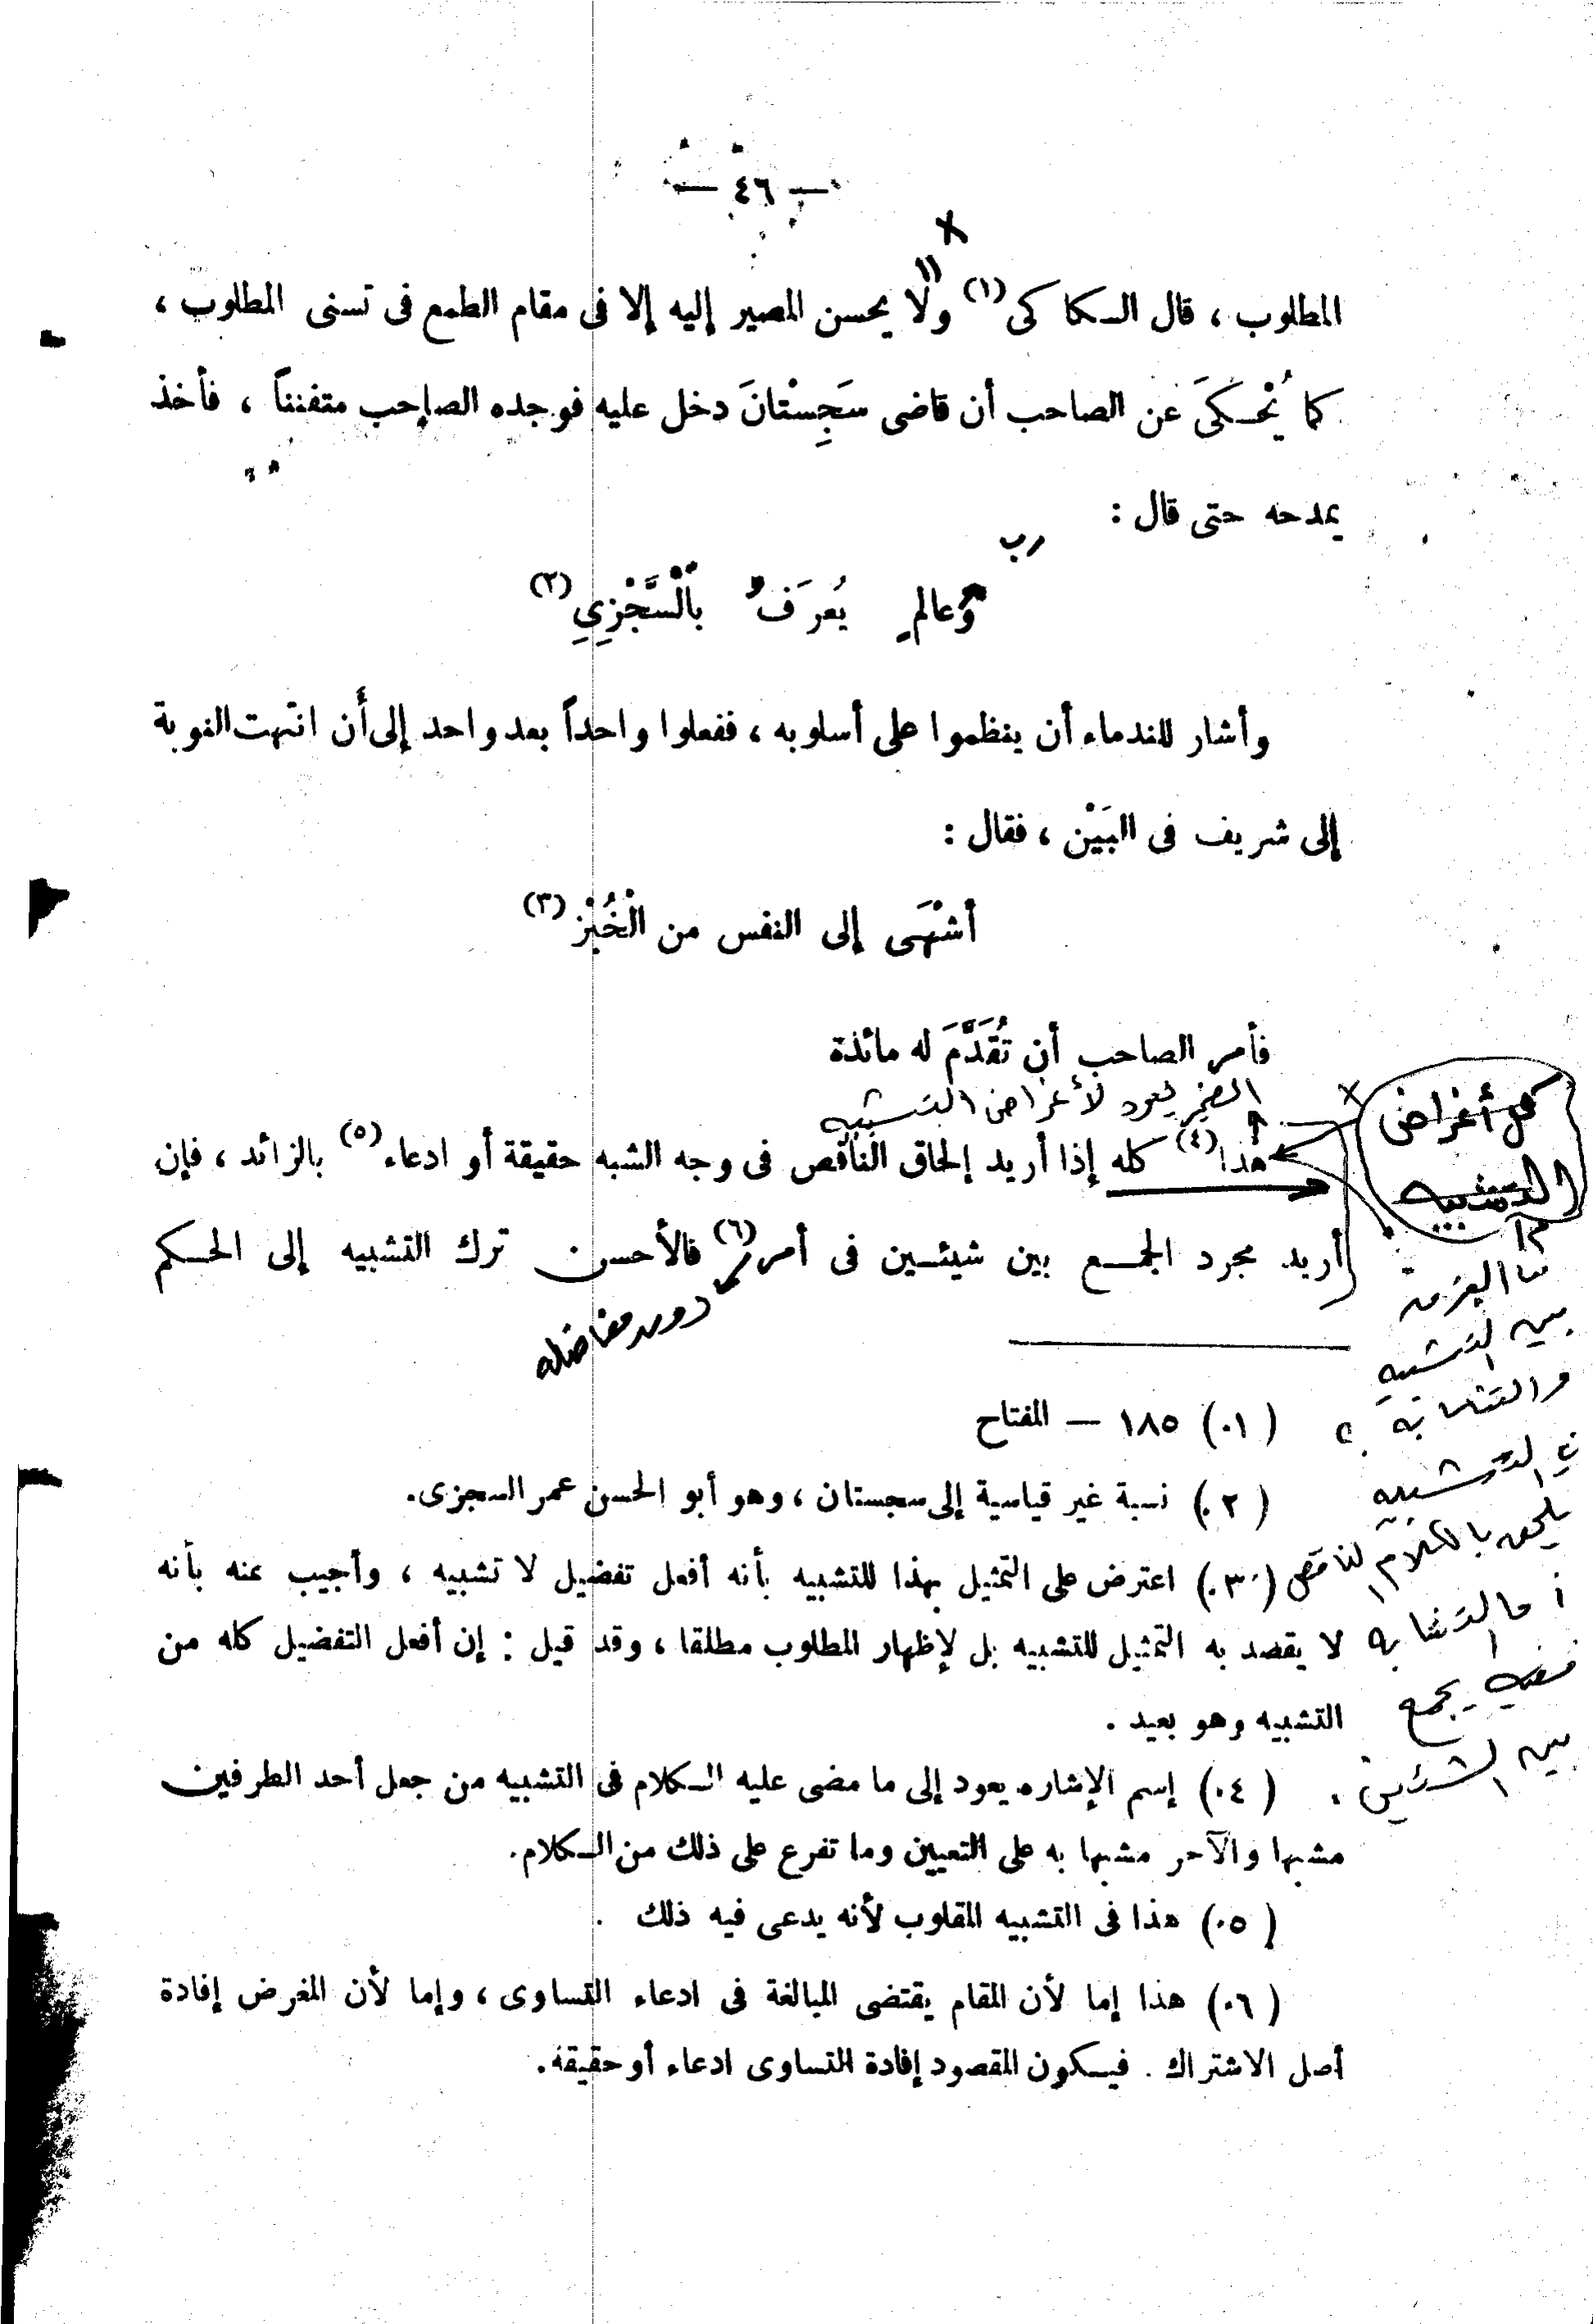 — ٤٦ —
المطلوب ، قال السكاكى (١) ولا يحسن المصير إليه إلا فى مقام الطمع فى تسنى المطلوب ،
كما يُحْكَىَ عن الصاحب أن قاضى سَجِسْتانَ دخل عليه فوجده الصاحب متفنناً ، فأخذ
يمدحه حتى قال :
رب
وَعالمٍ يُعرَفُ بالْسَّجْزِىِ (٢)
وأشار للندماء أن ينظموا على أسلوبه ، ففعلوا واحداً بعد واحد إلى أن انتهت النوبة
إلى شريف فى البَيْن ، فقال :
أشْهَى إلى النفس من الْخُبْز (٣)
فأمر الصاحب أن تُقَدَّمَ له مائدة
الضمير يعود لأغراض التشبيه
هذا (٤) كله إذا أريد إلحاق الناقص فى وجه الشبه حقيقة أو ادعاء (٥) بالزائد ، فإن
أريد مجرد الجمع بين شيئين فى أمر (٦) فالأحسن ترك التشبيه إلى الحكم
دون مفاضله
كل أغراض
التشبيه
ما الفرق
بين التشبيه
والتشابه ؟
التشبيه
يلحق بالكلام الناقص
أما التشابه
يجمع
بين الشيئين .
(١) ١٨٥ — المفتاح
(٢) نسبة غير قياسية إلى سجستان ، وهو أبو الحسن عمر السجزى.
(٣) اعترض على التمثيل بهذا للتشبيه بأنه أفعل تفضيل لا تشبيه ، وأجيب عنه بأنه
لا يقصد به التمثيل للتشبيه بل لإظهار المطلوب مطلقا ، وقد قيل : إن أفعل التفضيل كله من
التشبيه وهو بعيد .
(٤) إسم الإشاره يعود إلى ما مضى عليه الكلام فى التشبيه من جعل أحد الطرفين
مشبها والآحر مشبها به على التعيين وما تفرع على ذلك من الكلام.
(٥) هذا فى التشبيه المقلوب لأنه يدعى فيه ذلك .
(٦) هذا إما لأن المقام يقتضى المبالغة فى ادعاء التساوى ، وإما لأن الغرض إفادة
أصل الاشتراك . فيكون المقصود إفادة التساوى ادعاء أو حقيقة.